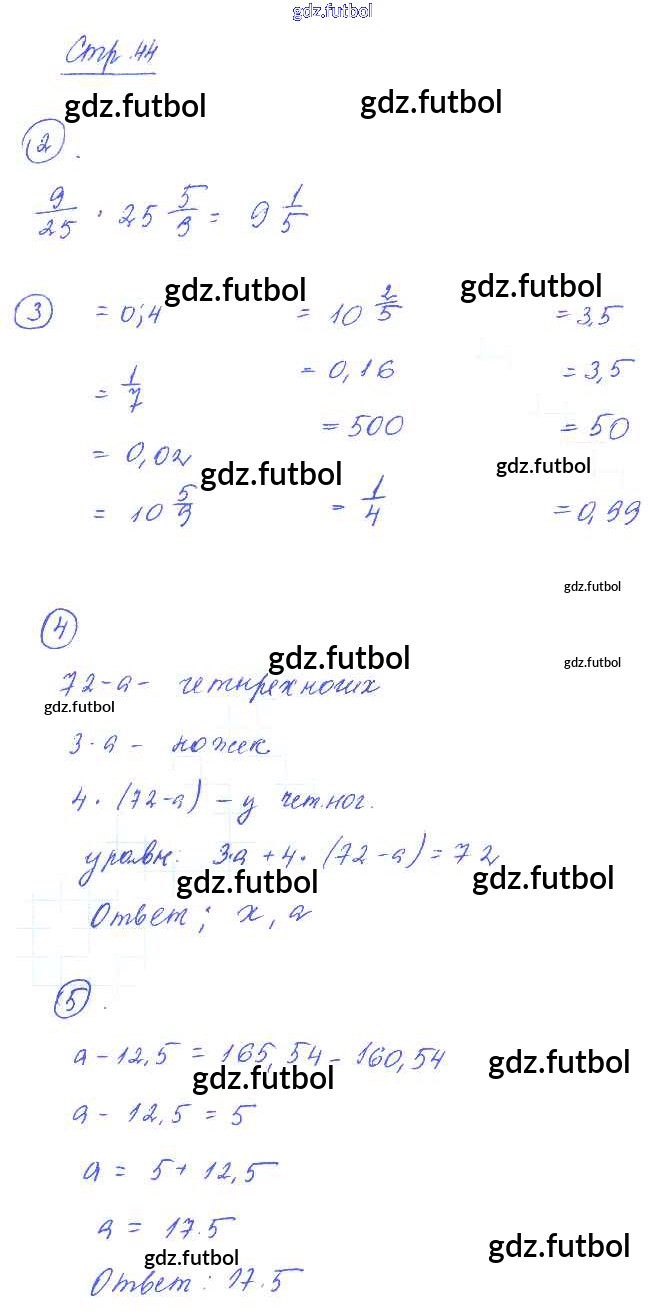 gdz.futbol
Стр. 44
gdz.futbol gdz.futbol
2.
9/25 · 25 5/9 = 9 1/5
gdz.futbol gdz.futbol
3 = 0,4 = 10 2/5 = 3,5
= 1/7 = 0,16 = 3,5
= 0,02 = 500 = 50
gdz.futbol gdz.futbol
= 10 5/9 = 1/4 = 0,99
gdz.futbol
4
gdz.futbol gdz.futbol
72-а- четырехногих
gdz.futbol
3·а - ножек
4·(72-а) - у чет.ног.
уравн: 3·а + 4·(72-а) = 72
gdz.futbol gdz.futbol
Ответ; х, а
5.
а - 12,5 = 165,54 - 160,54
gdz.futbol gdz.futbol
а - 12,5 = 5
а = 5 + 12,5
а = 17.5
gdz.futbol gdz.futbol
Ответ: 17.5